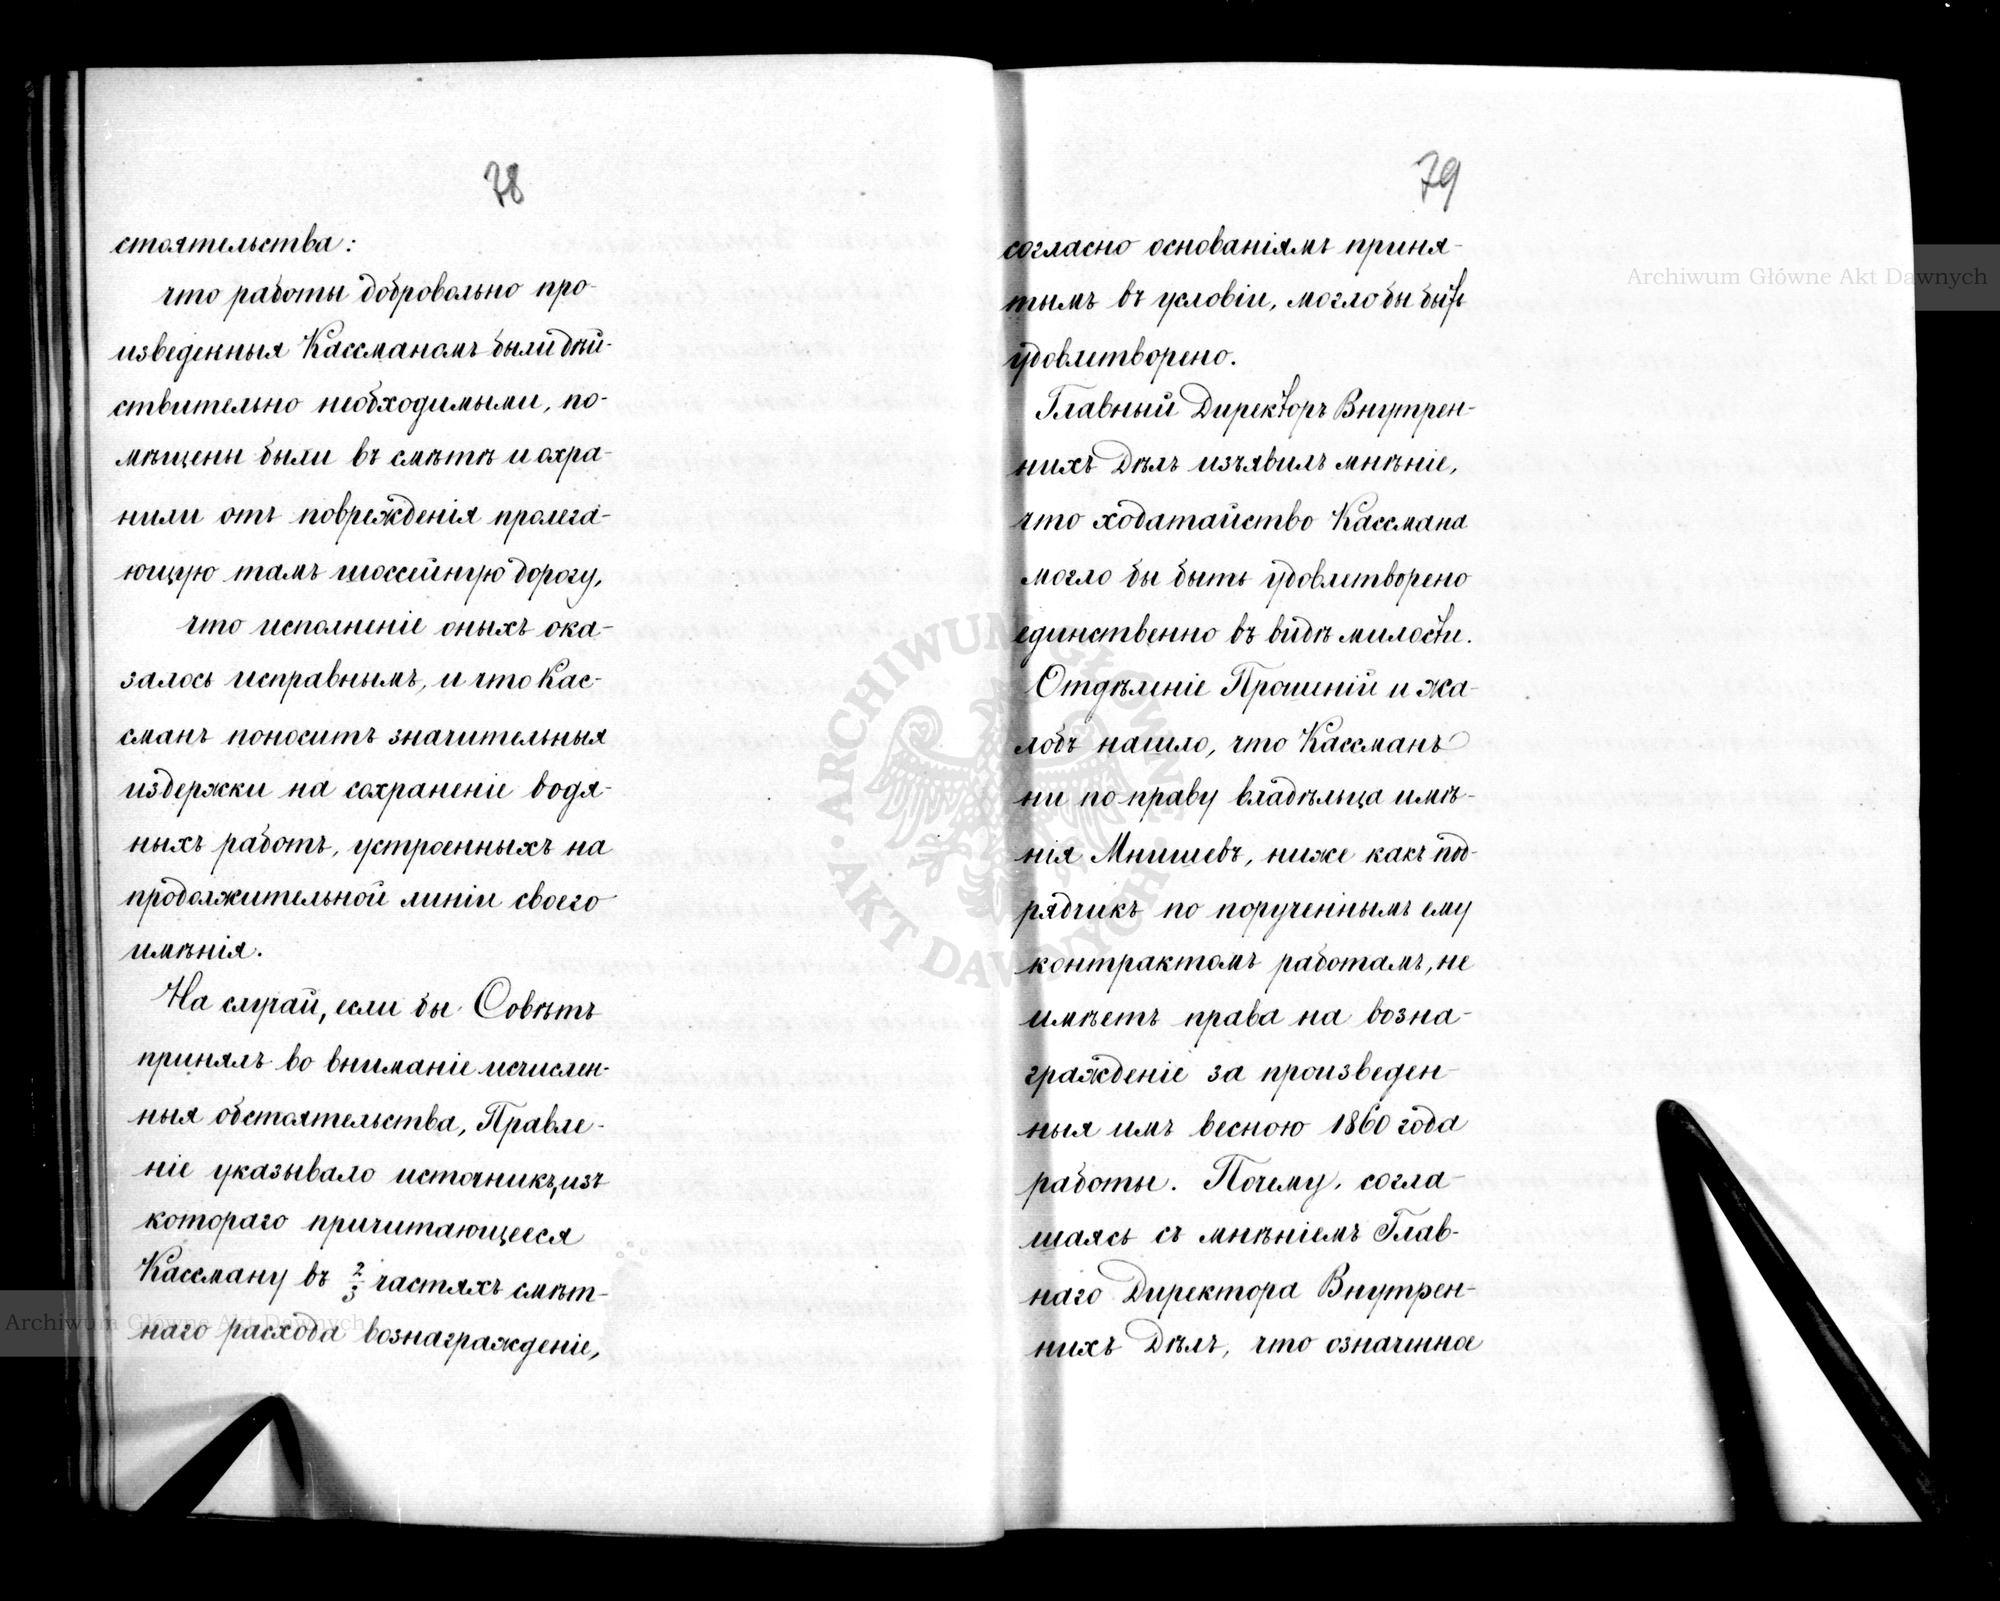 78
стоятельства:
что работы добровольно про-
изведенныя Кассманомъ были дѣй-
ствительно необходимыми, по-
мѣщены были въ смѣтѣ и охра-
нили отъ поврежденія пролега-
ющую тамъ шоссейную дорогу,
что исполненіе оныхъ ока-
залось исправнымъ, и что Кас-
сманъ поноситъ значительныя
издержки на сохраненіе водя-
ныхъ работъ, устроенныхъ на
продолжительной линіи своего
имѣнія.
На случай, если бы Совѣтъ
принялъ во вниманіе исчислен-
ныя обстоятельства, Правле-
ніе указывало источникъ, изъ
котораго причитающееся
Кассману въ 2/3 частяхъ смѣт-
наго расхода вознагражденіе,
79
согласно основаніямъ приня-
тымъ въ условіи, могло бы быть
удовлетворено.
Главный Директоръ Внутрен-
нихъ Дѣлъ изъявилъ мнѣніе,
что ходатайство Кассмана
могло бы быть удовлетворено
единственно въ видѣ милости.
Отдѣленіе Прошеній и жа-
лобъ нашло, что Кассманъ
ни по праву владѣльца имѣ-
нія Мнишевъ, ниже какъ под-
рядчикъ по порученнымъ ему
контрактомъ работамъ, не
имѣетъ права на возна-
гражденіе за произведен-
ныя имъ весною 1860 года
работы. Почему, согла-
шаясь съ мнѣніемъ Глав-
наго Директора Внутрен-
нихъ Дѣлъ, что означенное
Archiwum Główne Akt Dawnych
ARCHIWUM GŁÓWNE AKT DAWNYCH
Archiwum Główne Akt Dawnych